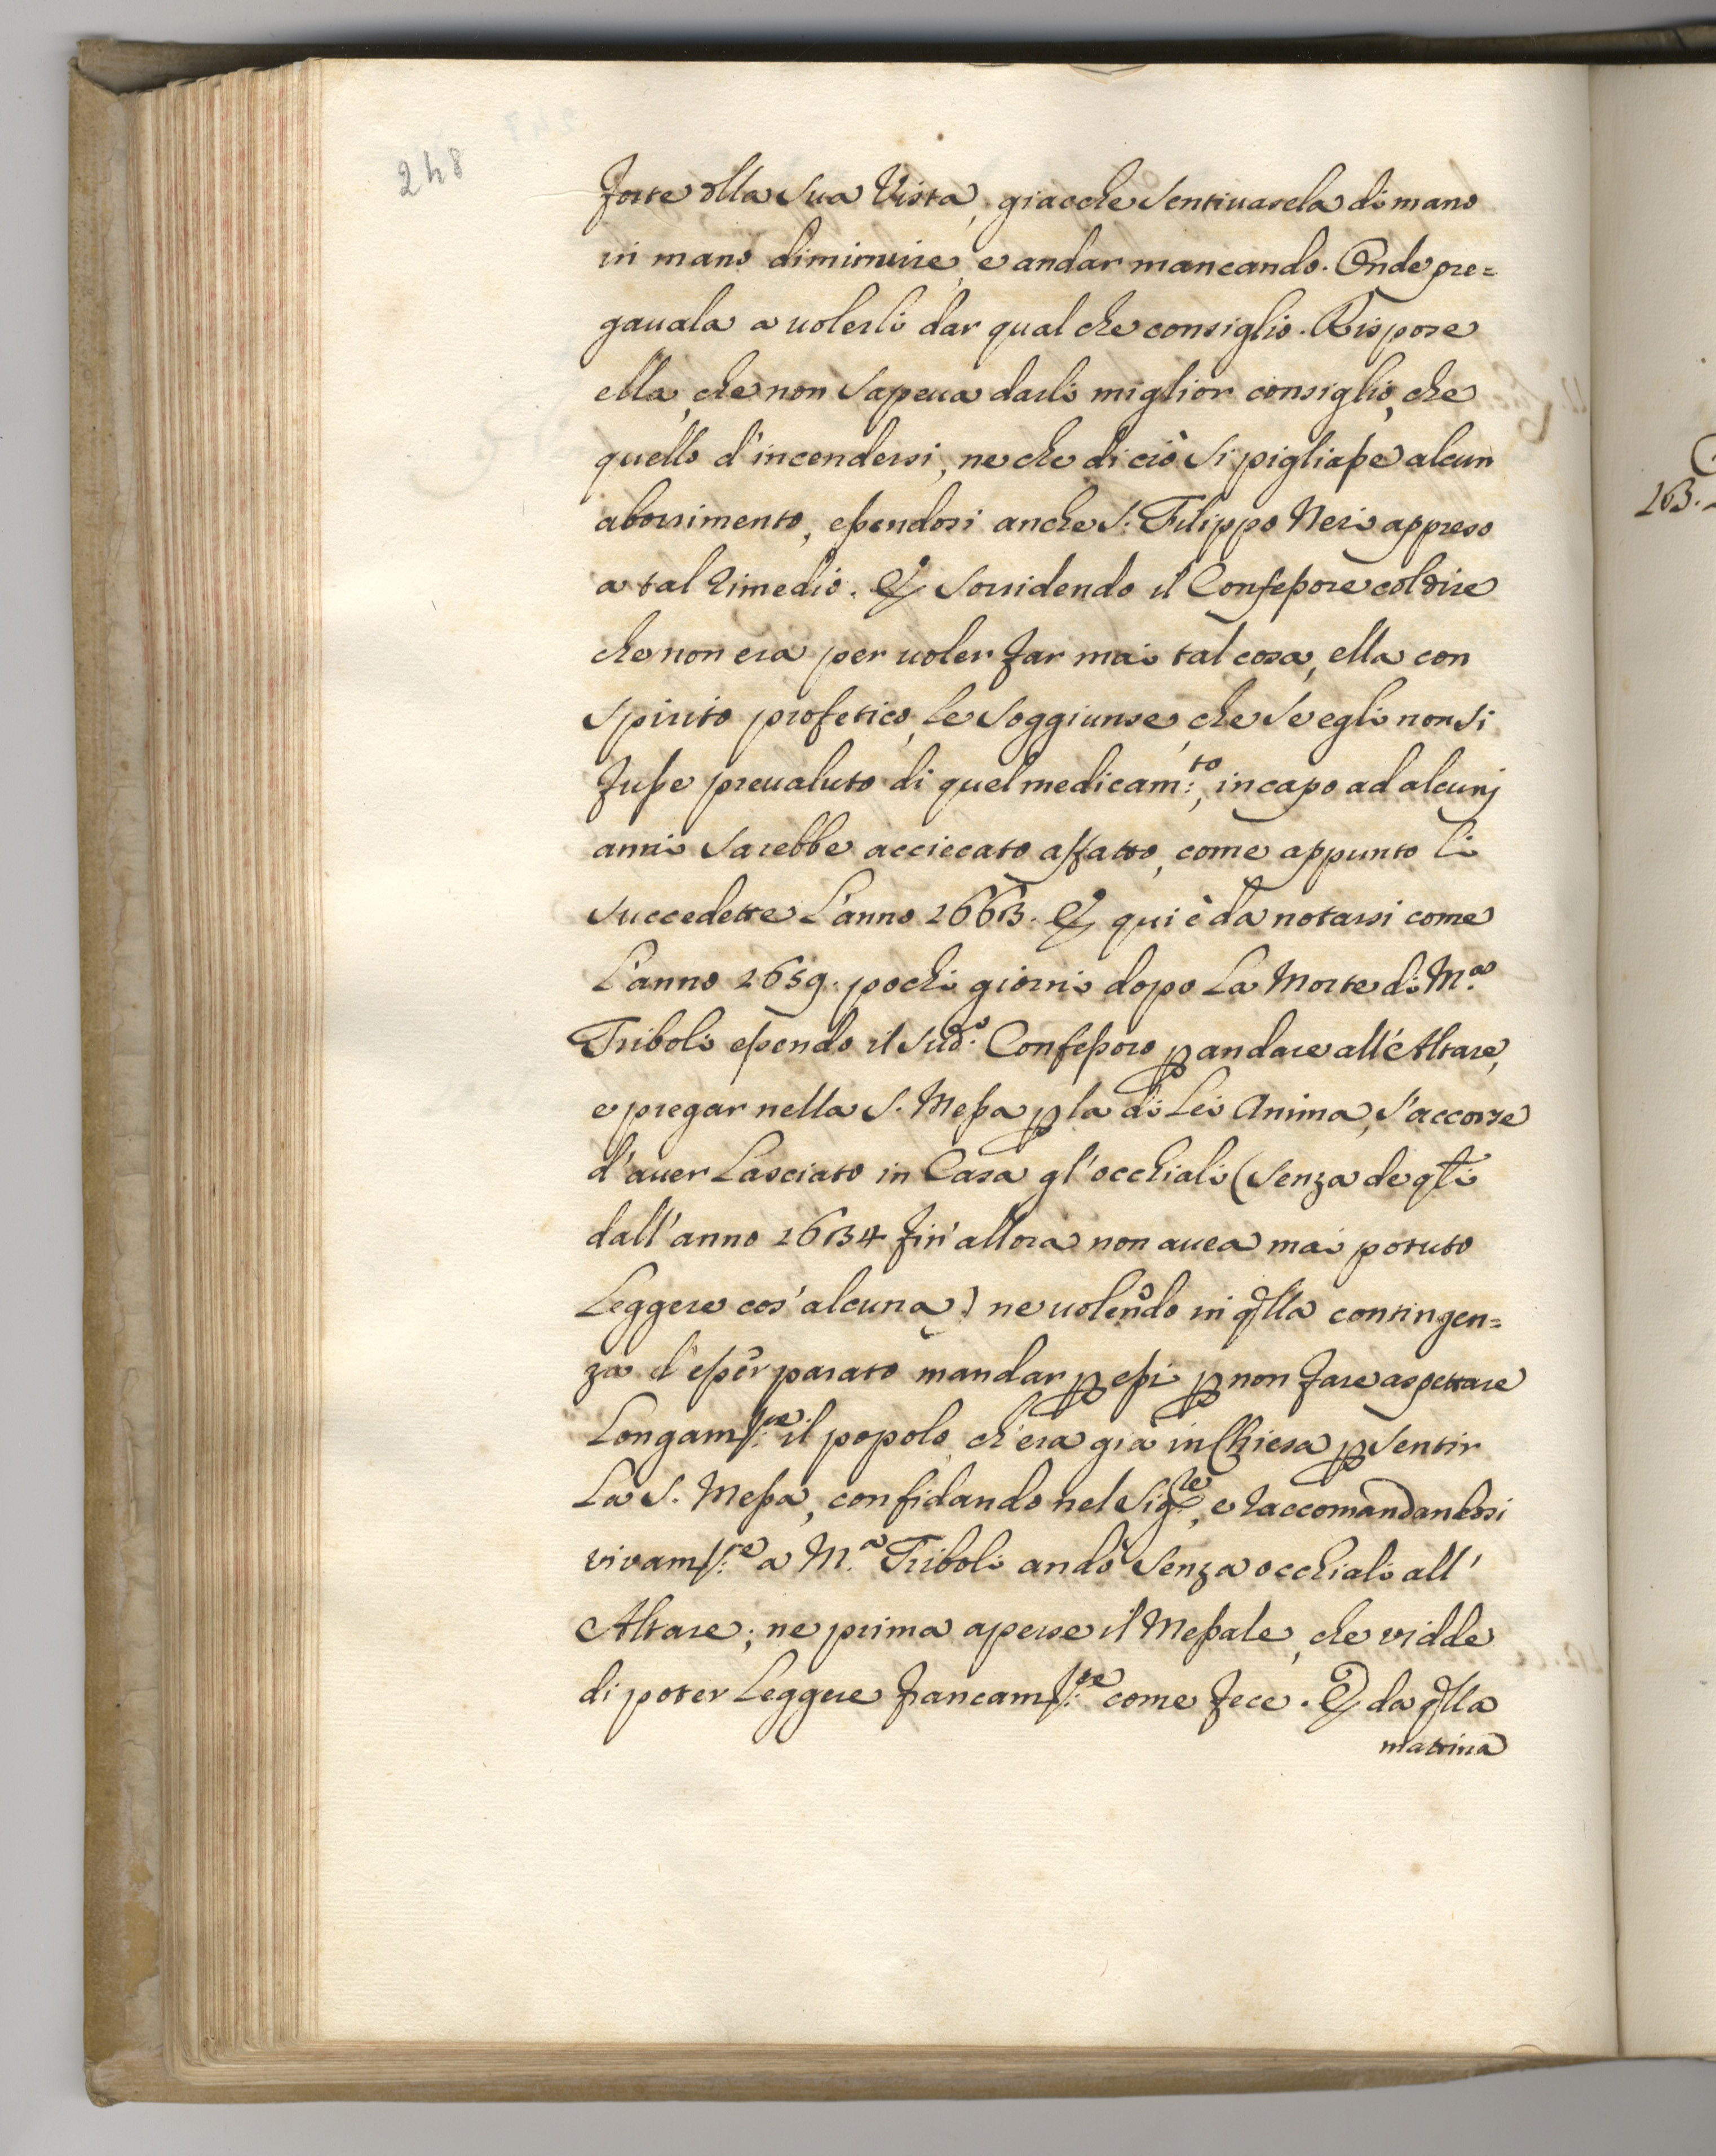 248
forte della sua Vista, giacche sentivasela di mano
in mano diminuire, e andar mancando. Onde pre=
gavala a volerli dar qualche consiglio. Rispose
ella, che non sapeva darli miglior consiglio, che
quello d'incendersi, ne che di ciò si pigliasse alcun
aborrimento, essendosi anche S. Filippo Neri appreso
a tal rimedio. E sorridendo il Confessore col dire
che non era per voler far mai tal cosa, ella con
spirito profetico, le soggiunse, che se egli non si
fusse prevaluto di quel medicam:to, in capo ad alcunj
anni sarebbe acciecato affatto, come appunto li
succedette L'anno 1663. E qui è da notarsi come
L'anno 1659. pochi giorni dopo La Morte di M.a
Triboli essendo il sud.o Confessoro p andare all'Altare,
e pregar nella S. Messa p la di Lei Anima, s'accorse
d'aver Lasciato in Casa gl'occhiali (senza de qli
dall'anno 1634 fin'allora non avea mai potuto
Leggere cos'alcuna) ne volendo in qlla contingen=
za d'esser parato mandar p essi p non fare aspettare
Longam:te il popolo, ch'era già in Chiesa p sentir
La S. Messa, confidando nel Sig.re, e raccomandandosi
vivam:te a M.a Triboli andò senza occhiali all'
Altare; ne prima aperse il Messale, che vidde
di poter Leggere francam:te come fece. E da qlla
mattina
163.